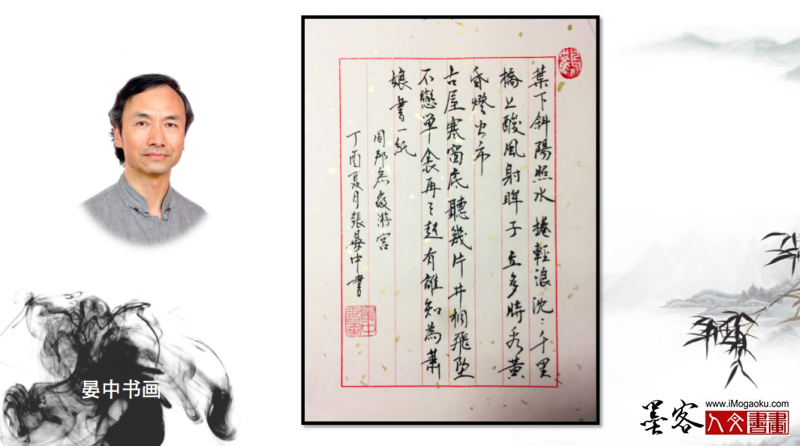 葉下斜陽照水 捲輕浪 沈〻千里
橋上酸風射眸子 立多時 看黄
昏燈火市
古屋寒窗底聽幾片井桐飛墜
不戀單衾再三起有誰知為蕭
孃書一紙
周邦彦夜游宫
丁酉夏月張晏中書
晏中书画
墨客
www.iMogaoku.com
人文書畫